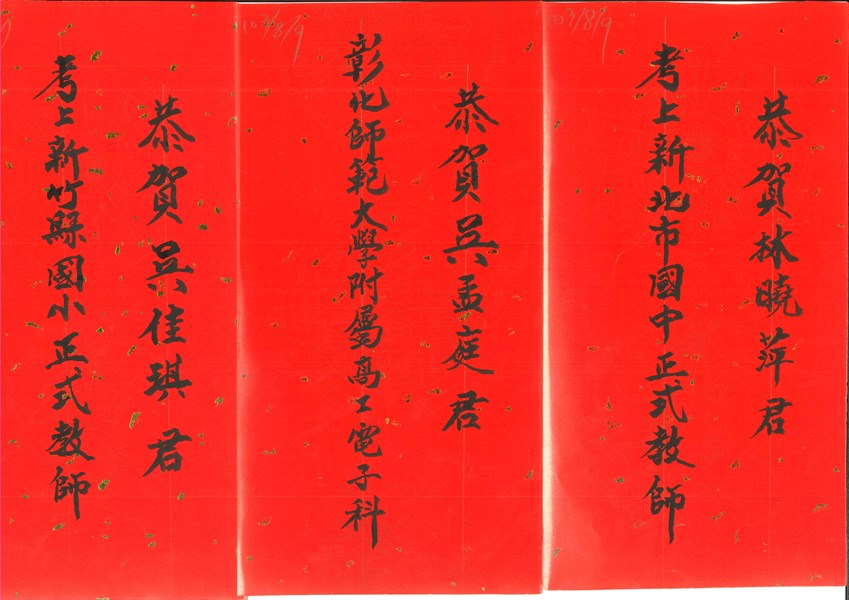 恭賀林曉萍君
考上新北市國中正式教師
恭賀吳孟庭君
彰化師範大學附屬高工電子科
恭賀吳佳琪君
考上新竹縣國小正式教師
103/8/9